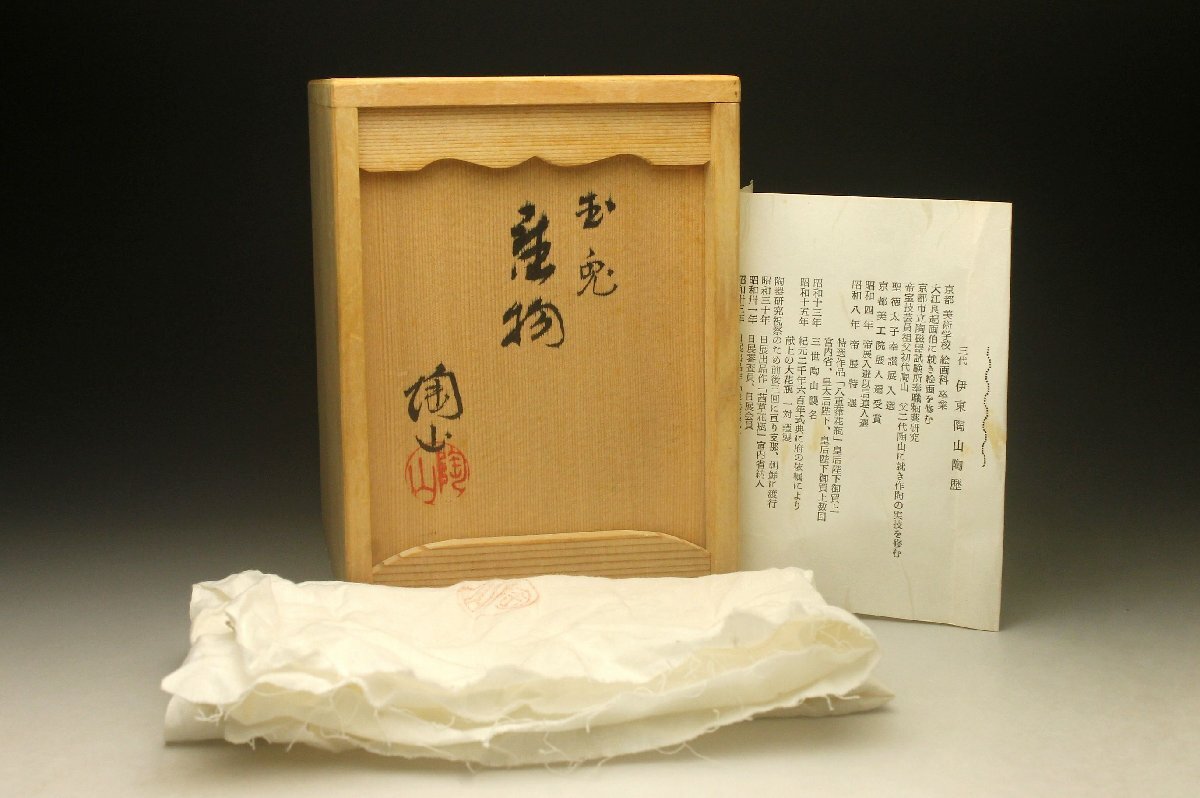 玉兎
座物
陶山
陶山
三代 伊東陶山陶歴
京都美術学校絵画科卒業
大江良起画伯に就き絵画を修む
京都市立陶磁器試験所奉職釉薬研究
帝室技芸員祖父初代陶山 父二代陶山に就き作陶の実技を修む
聖徳太子奉讃展入選
京都美工院展入選受賞
昭和四年 帝展入選以品連入選
昭和八年 帝展特選
特選作品「八重葎花瓶」皇后陛下御買上
宮内省、皇太后陛下、皇后陛下御買上数回
昭和十三年 三世陶山襲名
昭和十五年 紀元二千年六百年式典に府の依嘱により
献上の大花瓶一対謹製
陶器研究視察のため前後三回に亘り支那、朝鮮に渡行
昭和三十年 日展出品作「茜草花瓶」宮内省納入
昭和卅一年 日展審査員、日展会員